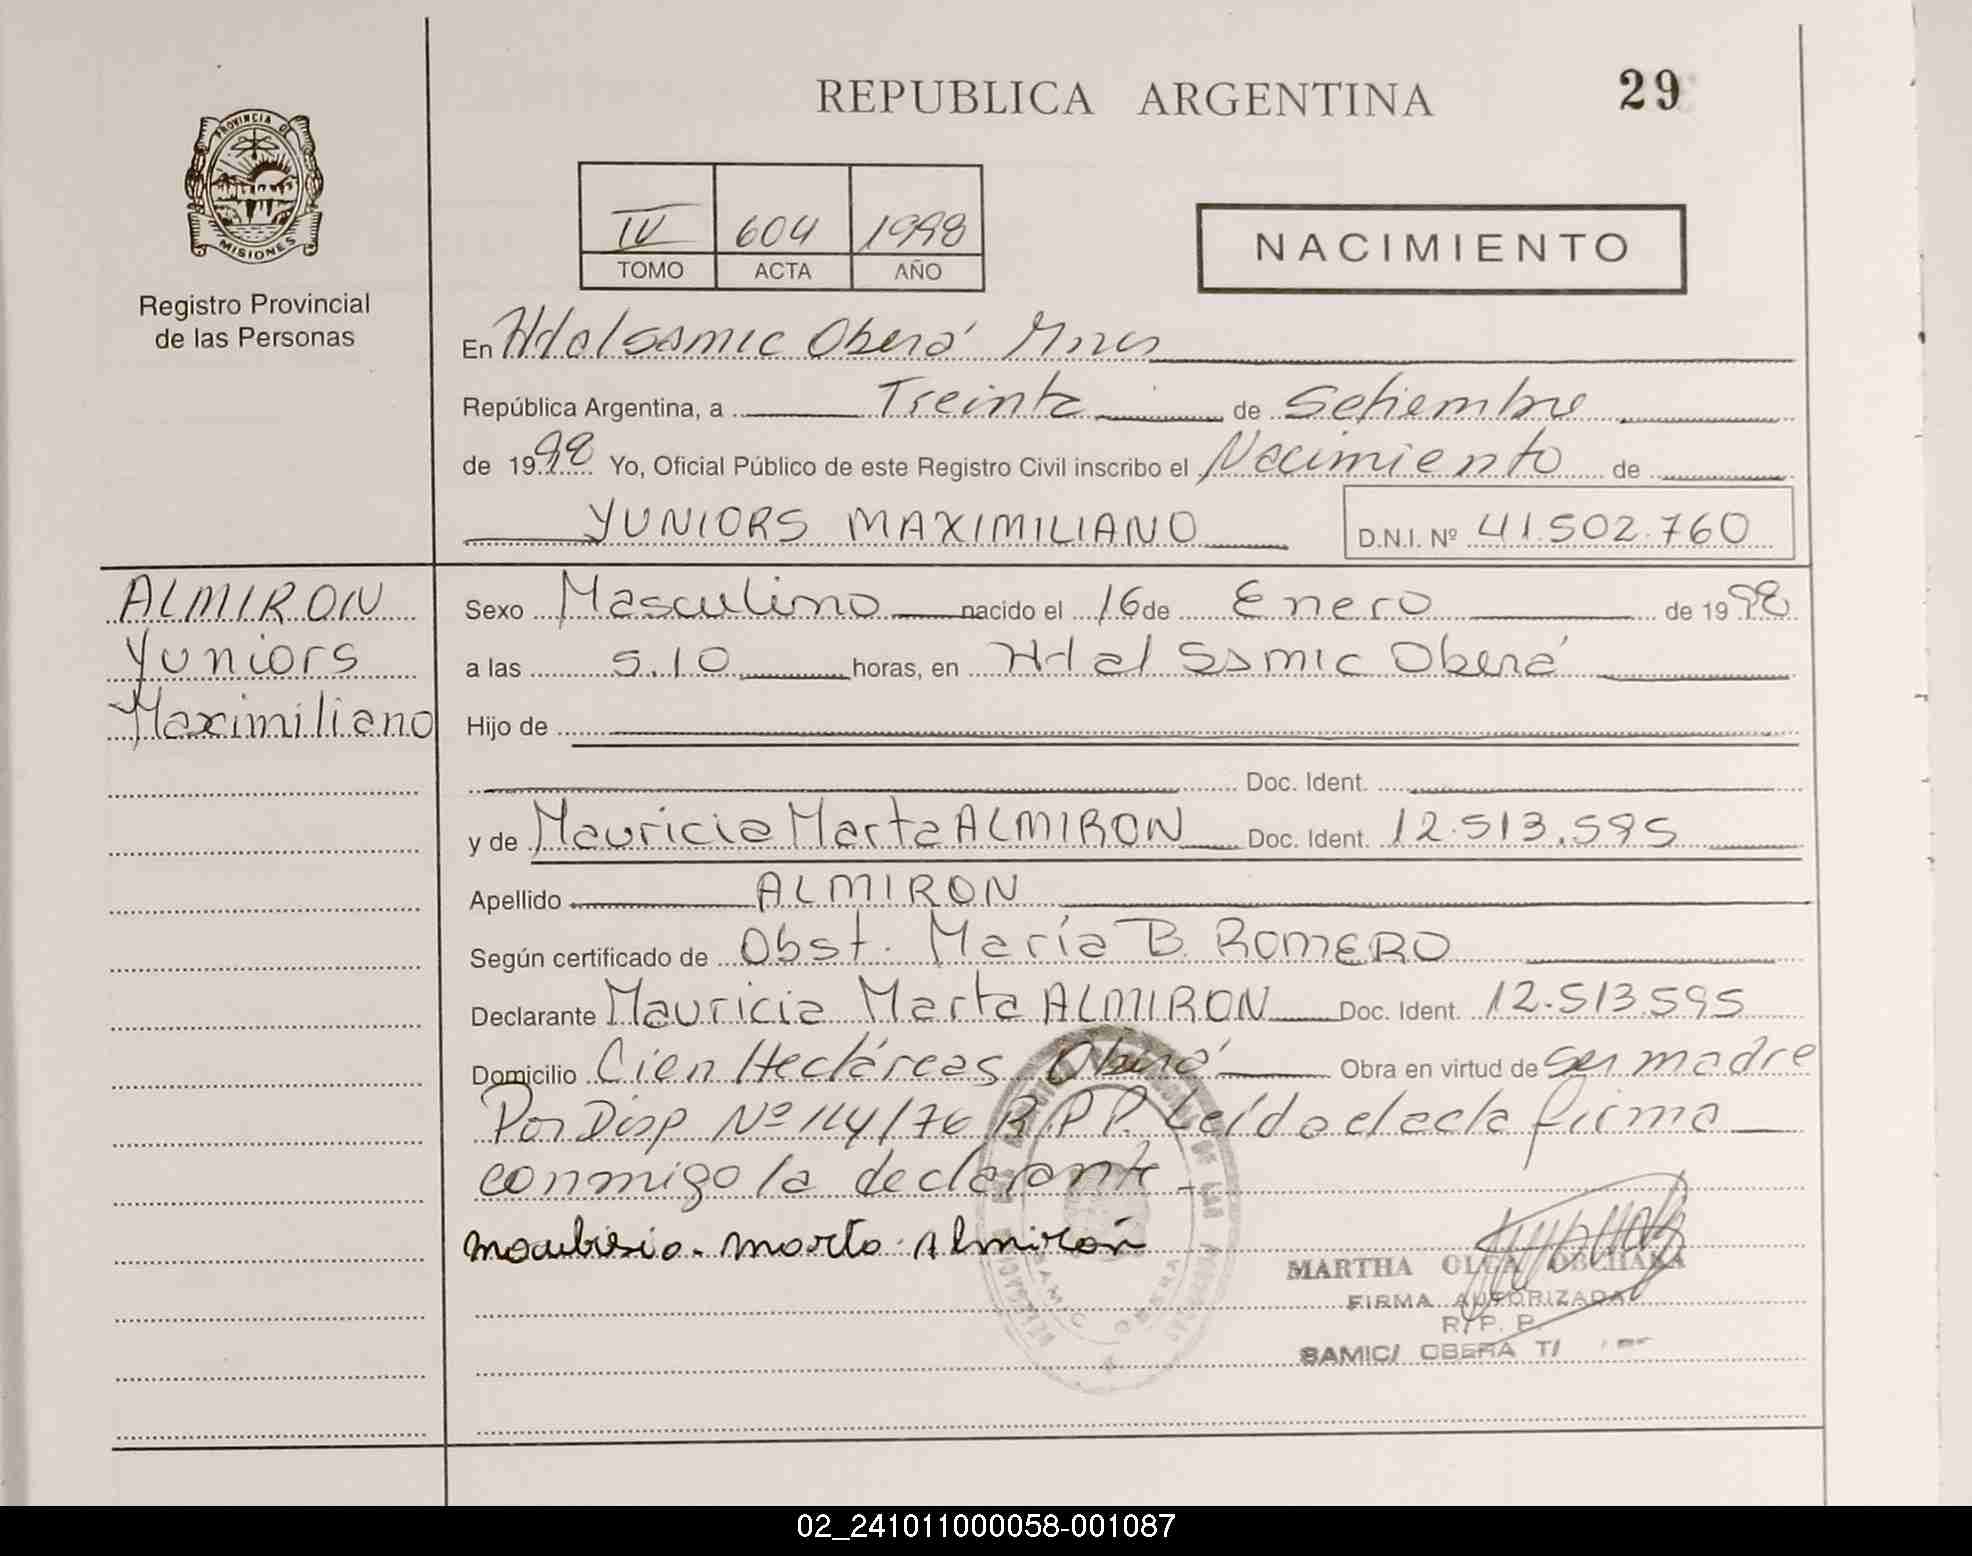 REPUBLICA ARGENTINA
29
PROVINCIA DE
MISIONES
Registro Provincial
de las Personas
IV 604 1998
TOMO ACTA AÑO
NACIMIENTO
En Hdal Samic Oberá Mnes
República Argentina, a Treinta de Setiembre
de 1998 Yo, Oficial Público de este Registro Civil inscribo el Nacimiento de
YUNIORS MAXIMILIANO D.N.I. Nº 41.502.760
ALMIRON
Yuniors
Maximiliano
Sexo Masculino nacido el 16 de Enero de 1998
a las 5.10 horas, en Hdal Samic Oberá
Hijo de
Doc. Ident.
y de Mauricia Marta ALMIRON Doc. Ident. 12.513.595
Apellido ALMIRON
Según certificado de Obst. María B. ROMERO
Declarante Mauricia Marta ALMIRON Doc. Ident. 12.513.595
Domicilio Cien Hectáreas Oberá Obra en virtud de ser madre
Por Disp Nº 114/76 R.P.P. Leída el acta firma
conmigo la declarante
maubisio. marta Almirón
MARTHA OLGA
FIRMA AUTORIZADA
R/P. P.
SAMIC/ OBERA T/
02_241011000058-001087